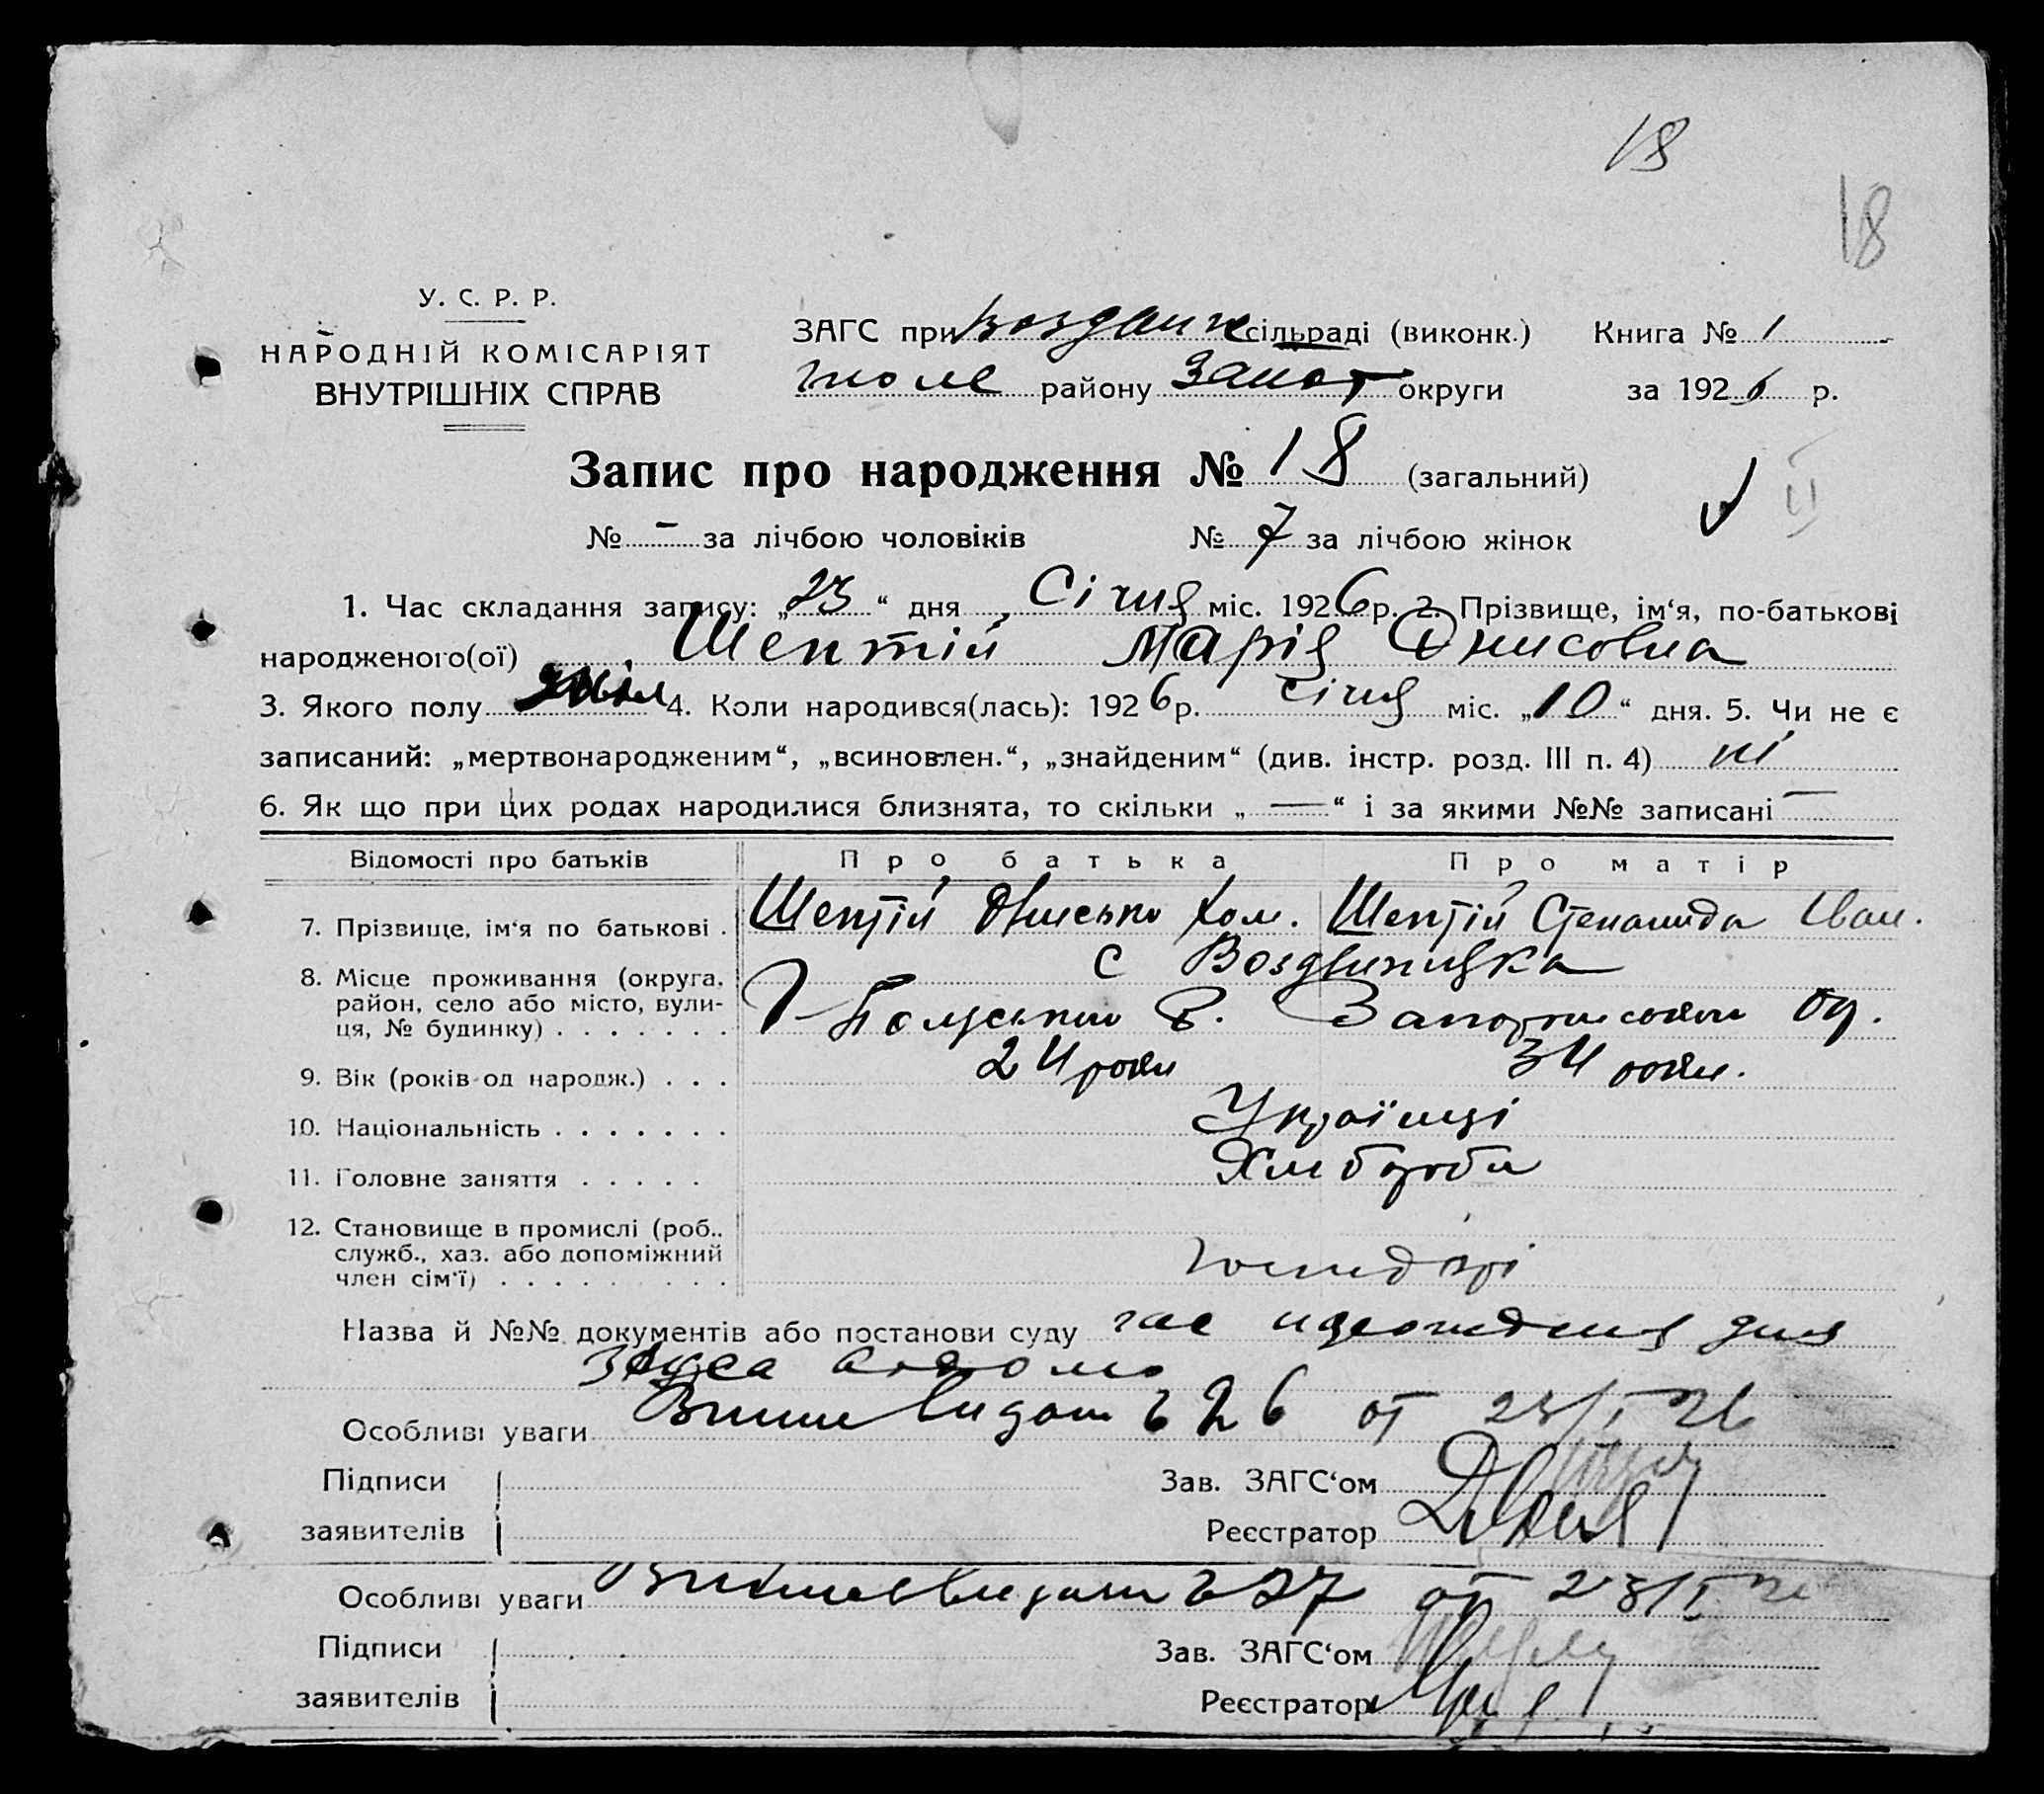 18
18
У. С. Р. Р.
НАРОДНІЙ КОМІСАРІЯТ
ВНУТРІШНІХ СПРАВ
ЗАГС при Воздвиж сільраді (виконк.) Книга № 1
гюле району Запор округи за 1926 р.
Запис про народження № 18 (загальний)
№ – за лічбою чоловіків № 7 за лічбою жінок
1. Час складання запису: „23“ дня Січня міс. 1926 р. 2. Прізвище, ім‘я, по-батькові
народженого(ої) Шептій Марія Днисовна
3. Якого полу 4. Коли народився(лась): 1926 р. Січня міс. „10“ дня. 5. Чи не є
записаний: „мертвонародженим“, „всиновлен.“, „знайденим“ (див. інстр. розд. III п. 4) ні
6. Як що при цих родах народилися близнята, то скільки „—“ і за якими №№ записані —
Відомості про батьків Про батька Про матір
7. Прізвище, ім‘я по батькові . Шептій Хом. Шептій Степанида Іван.
8. Місце проживання (округа, район, село або місто, вулиця, № будинку) . . . . . . .
с Воздвижевка
Г-Польського Р. Запоріжської Ок.
9. Вік (років од народж.) . . . 24 роки 34 роки.
10. Національність . . . . . . . Українці
11. Головне заняття . . . . . Хлібороби
12. Становище в промислі (роб.. служб., хаз. або допоміжний член сім‘ї) . . . . . . . . .
господарі
Назва й №№ документів або постанови суду
Особливі уваги Випис видан 26 от 23/I 26
Підписи Зав. ЗАГС‘ом
заявителів Реєстратор
Особливі уваги Випис видан 27 от 23/I 26
Підписи Зав. ЗАГС‘ом
заявителів Реєстратор